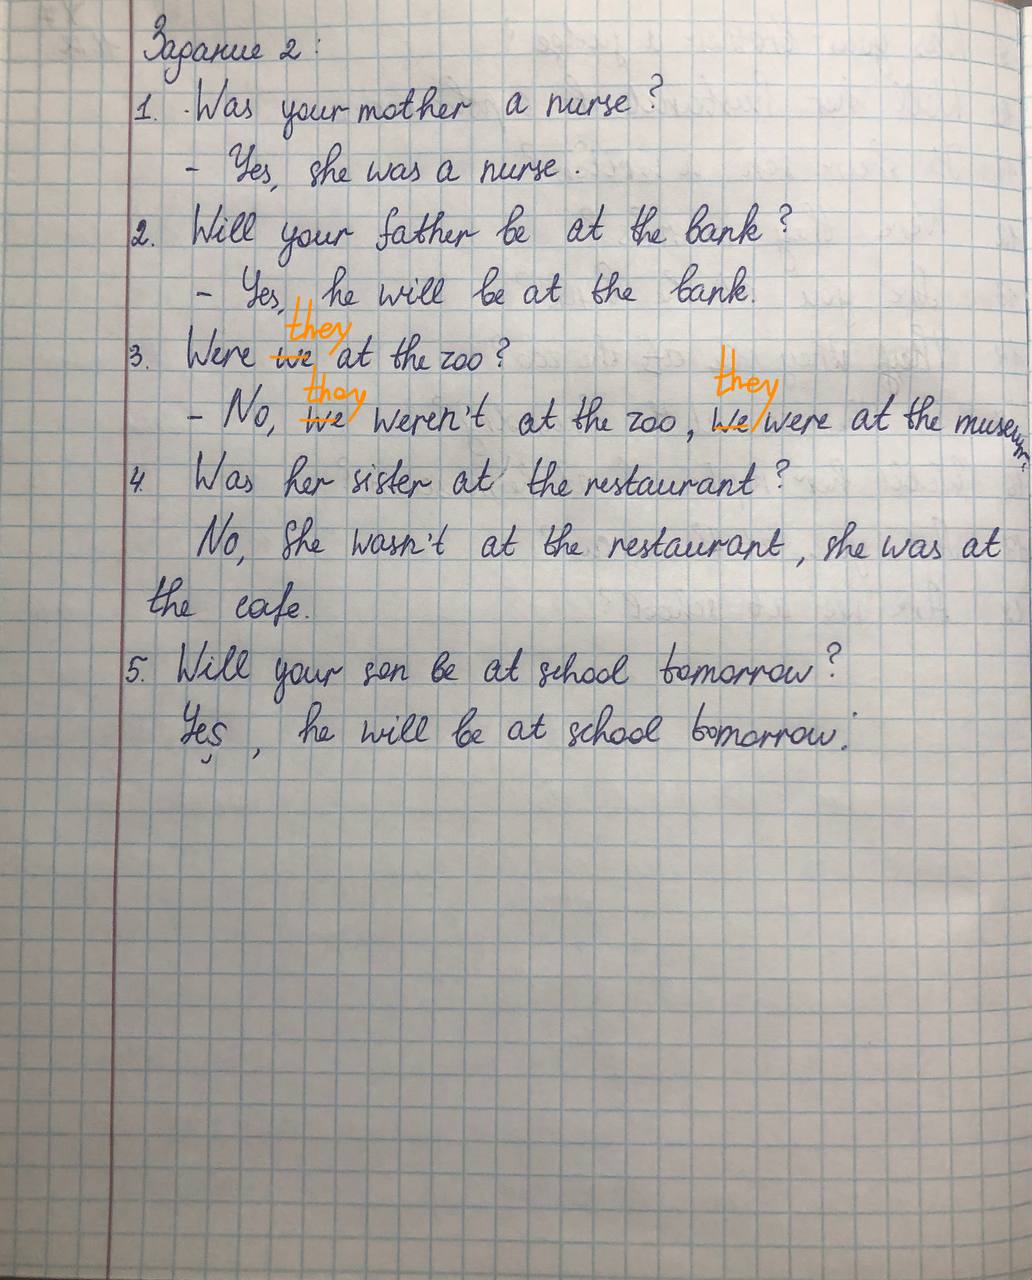 Задание 2:
1. Was your mother a nurse?
- Yes, she was a nurse.
2. Will your father be at the bank?
- Yes, he will be at the bank.
they
3. Were we at the zoo?
they they
- No, we weren't at the zoo, we were at the museum.
4. Was her sister at the restaurant?
No, she wasn't at the restaurant, she was at
the cafe.
5. Will your son be at school tomorrow?
Yes, he will be at school tomorrow.